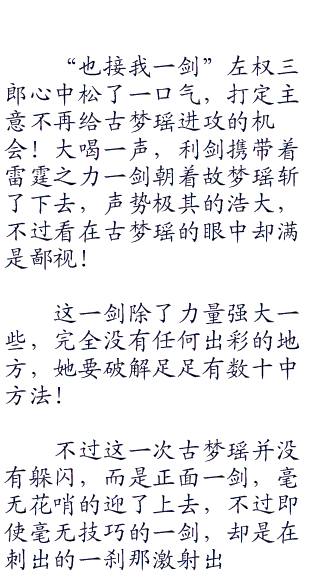 “也接我一剑”左权三
郎心中松了一口气，打定主
意不再给古梦瑶进攻的机
会！大喝一声，利剑携带着
雷霆之力一剑朝着故梦瑶斩
了下去，声势极其的浩大，
不过看在古梦瑶的眼中却满
是鄙视！
这一剑除了力量强大一
些，完全没有任何出彩的地
方，她要破解足足有数十中
方法！
不过这一次古梦瑶并没
有躲闪，而是正面一剑，毫
无花哨的迎了上去，不过即
使毫无技巧的一剑，却是在
刺出的一刹那激射出